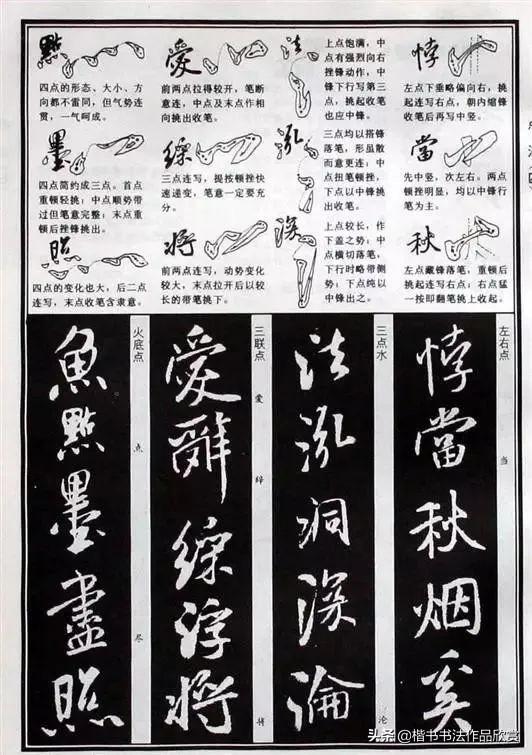 悖
左点下垂略偏向右，挑
起连写右点，朝内缩锋
收笔后再写中竖。
當
先中竖，次左右。两点
顿挫明显，均以中锋行
笔为主。
秋
左点藏锋落笔，重顿后
挑起连写右点；右点猛
一按即翻笔挑上收起。
法
上点饱满，中
点有强烈向右
挫锋动作，中
锋下行写第三
点，挑起收笔
也应中锋。
泓
三点均以搭锋
落笔，形虽散
而意更连；中
点扭笔顿挫，
下点以中锋挑
出收笔。
深
上点较长，作
下盖之势；中
点横切落笔，
下行时略带侧
势；下点纯以
中锋出之。
愛
前两点拉得较开，笔断
意连，中点及末点作相
向挑出收笔。
綵
三点连写，提按顿挫快
速递变，笔意一定要充
分。
将
前两点连写，动势变化
较大，末点拉开后以较
长的带笔挑下。
點
四点的形态、大小、方
向都不雷同，但气势连
贯，一气呵成。
墨
四点简约成三点。首点
重顿轻挑；中点顺势带
过但笔意完整；末点重
顿后挫锋挑出。
照
四点的变化也大，后二点
连写，末点收笔含隶意。
左右点
当
悖當秋烟奚
三点水
沦
法泓洞深淪
三联点
爱
辞
将
愛辭綵浮将
火底点
点
尽
魚點墨盡照
头条@楷书书法作品欣赏